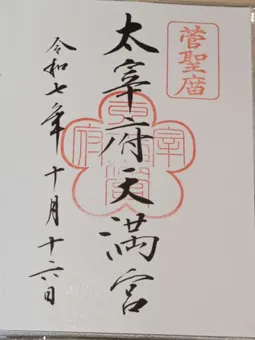 菅聖庿
太宰府天満宮
令和七年十月十六日